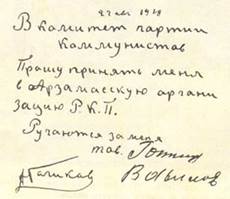 В комитет партии
Коммунистов
Прошу принять меня
в Арзамасскую органи
зацию Р.К.П.
Ручаются за меня
тов. Гоппиус
А Голиков